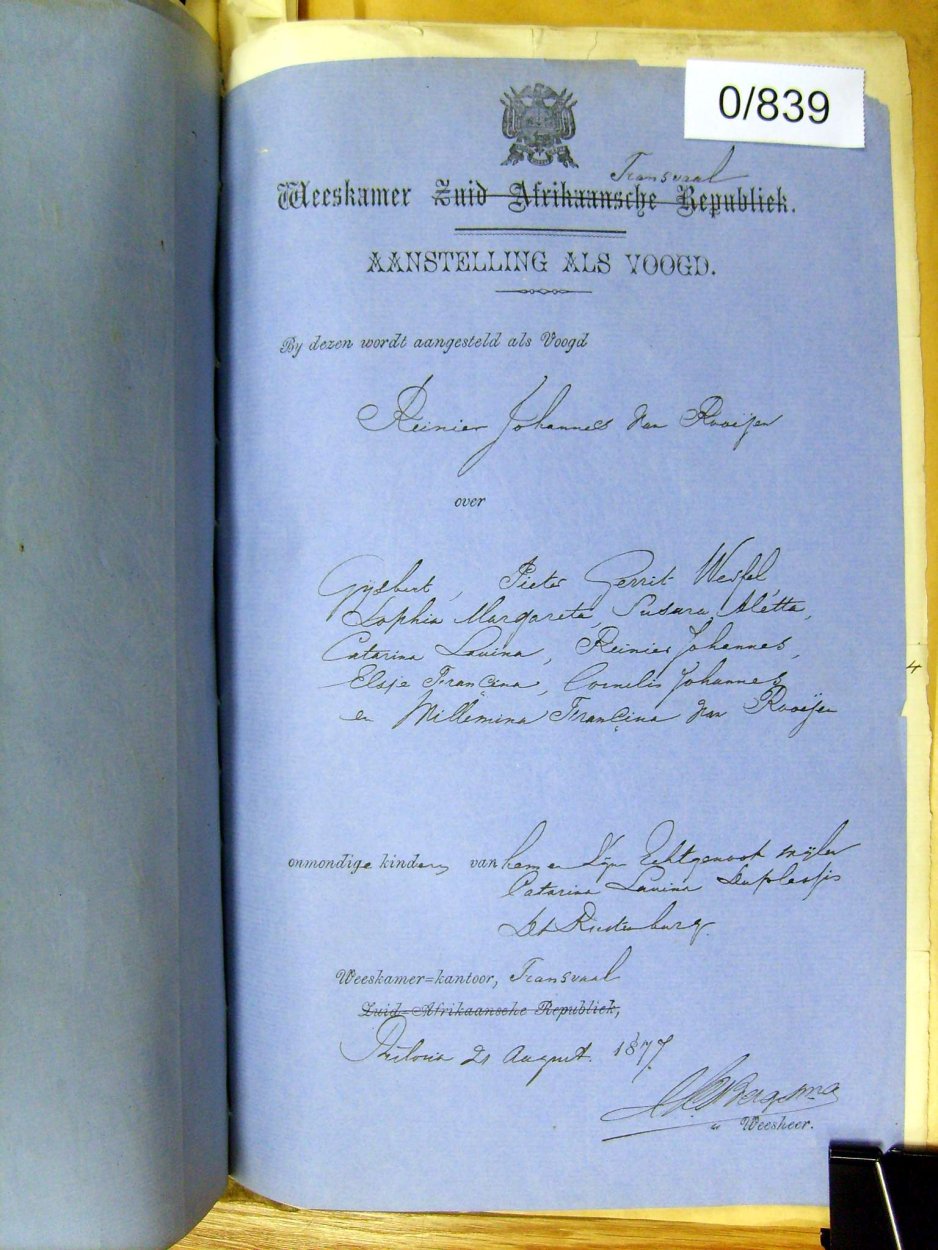 0/839
Transvaal
Weeskamer Zuid Afrikaansche Republiek.
AANSTELLING ALS VOOGD.
By dezen wordt aangesteld als Voogd
Reinier Johannes van Rooijen
over
Gijsbert, Pieter Gerrit Wessel
Sophia Margareta, Susara Aletta,
Catarina Lavina, Reinier Johannes,
Elsje Francina, Cornelis Johannes
en Willemina Francina van Rooijen
4
onmondige kinders van hem en Zijn Echtgenoot wijlen
Catarina Lavina Duplessis
Dt Rustenburg.
Weeskamer=kantoor, Transvaal
Zuid=Afrikaansche Republiek,
Pretoria 21 August. 1877.
Bergsma
Weesheer.